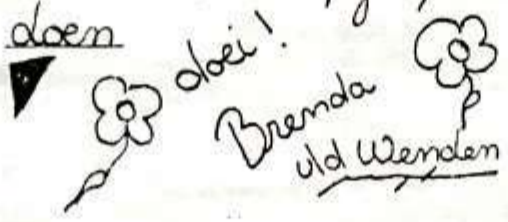 doen
doei!
Brenda
vld Wenden